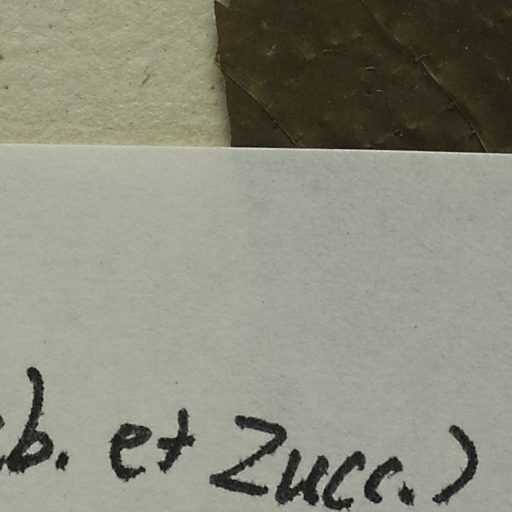 b. et Zucc.)